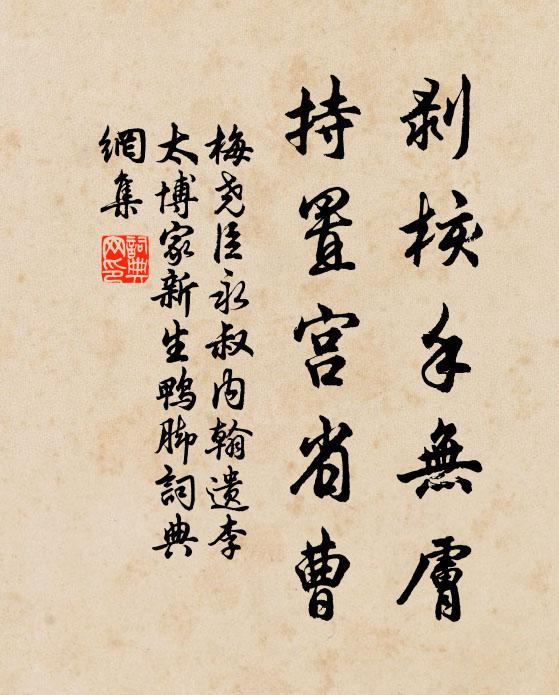 剥核手無膚
持置宫省曹
梅尧臣永叔内翰遗李
太博家新生鸭脚詞典
網集
詞典
网印